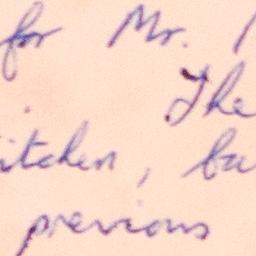 for Mr.
The
itchen, ba
previous